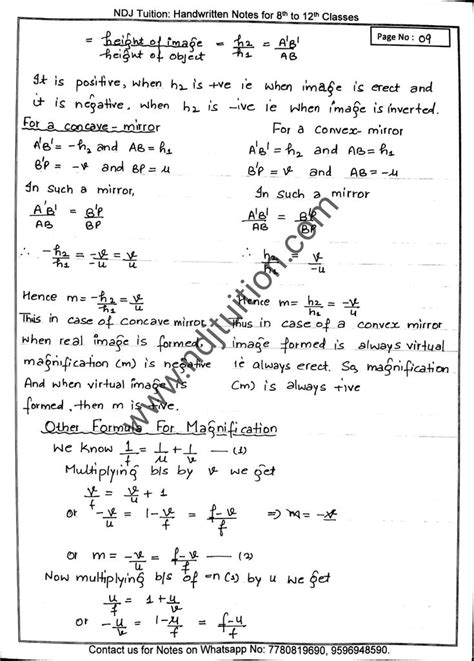 NDJ Tuition: Handwritten Notes for 8th to 12th Classes
Page No: 09
= height of image / height of object = h₂/h₁ = A'B'/AB
It is positive, when h₂ is +ve ie when image is erect and
it is negative. when h₂ is -ive ie when image is inverted.
For a concave-mirror
A'B' = -h₂ and AB = h₁
B'P = -v and BP = u
In such a mirror,
A'B'/AB = B'P/BP
∴ -h₂/h₁ = -v/-u = v/u
Hence m = -h₂/h₁ = v/u
This in case of concave mirror.
when real image is formed,
magnification (m) is negative
And when virtual image is
formed, then m is +ive.
For a convex-mirror
A'B' = h₂ and AB = h₁
B'P = v and BP = -u
In such a mirror
A'B'/AB = B'P/BP
∴ h₂/h₁ = v/-u
Hence m = h₂/h₁ = -v/u
Thus in case of a convex mirror
image formed is always virtual
ie always erect. So, magnification
(m) is always +ive
www.ndjtuition.com
Other Formula For Magnification
We know 1/f = 1/u + 1/v — (1)
Multiplying b/s by v we get
v/f = v/u + 1
or -v/u = 1 - v/f = f-v/f ⇒ m = -v
or m = -v/u = f-v/f — (2)
Now multiplying b/s of =n (1) by u we get
u/f = 1 + u/v
or -u/v = 1 - u/f = f-u/f
Contact us for Notes on Whatsapp No: 7780819690, 9596948590.